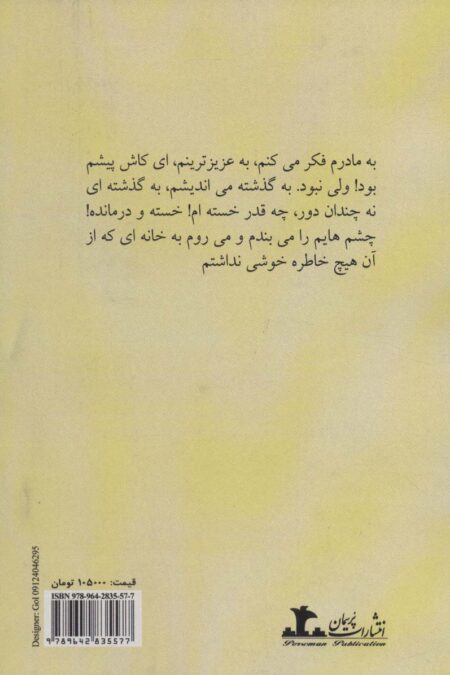 به مادرم فکر می کنم، به عزیزترینم، ای کاش پیشم
بود! ولی نبود. به گذشته می اندیشم، به گذشته ای
نه چندان دور، چه قدر خسته ام! خسته و درمانده!
چشم هایم را می بندم و می روم به خانه ای که از
آن هیچ خاطره خوشی نداشتم
Designer: Gol 09124046295
قیمت: ۱۰۵۰۰۰ تومان
ISBN 978-964-2835-57-7
9 789642 835577
انتشارات پریمان
Pereman Publication